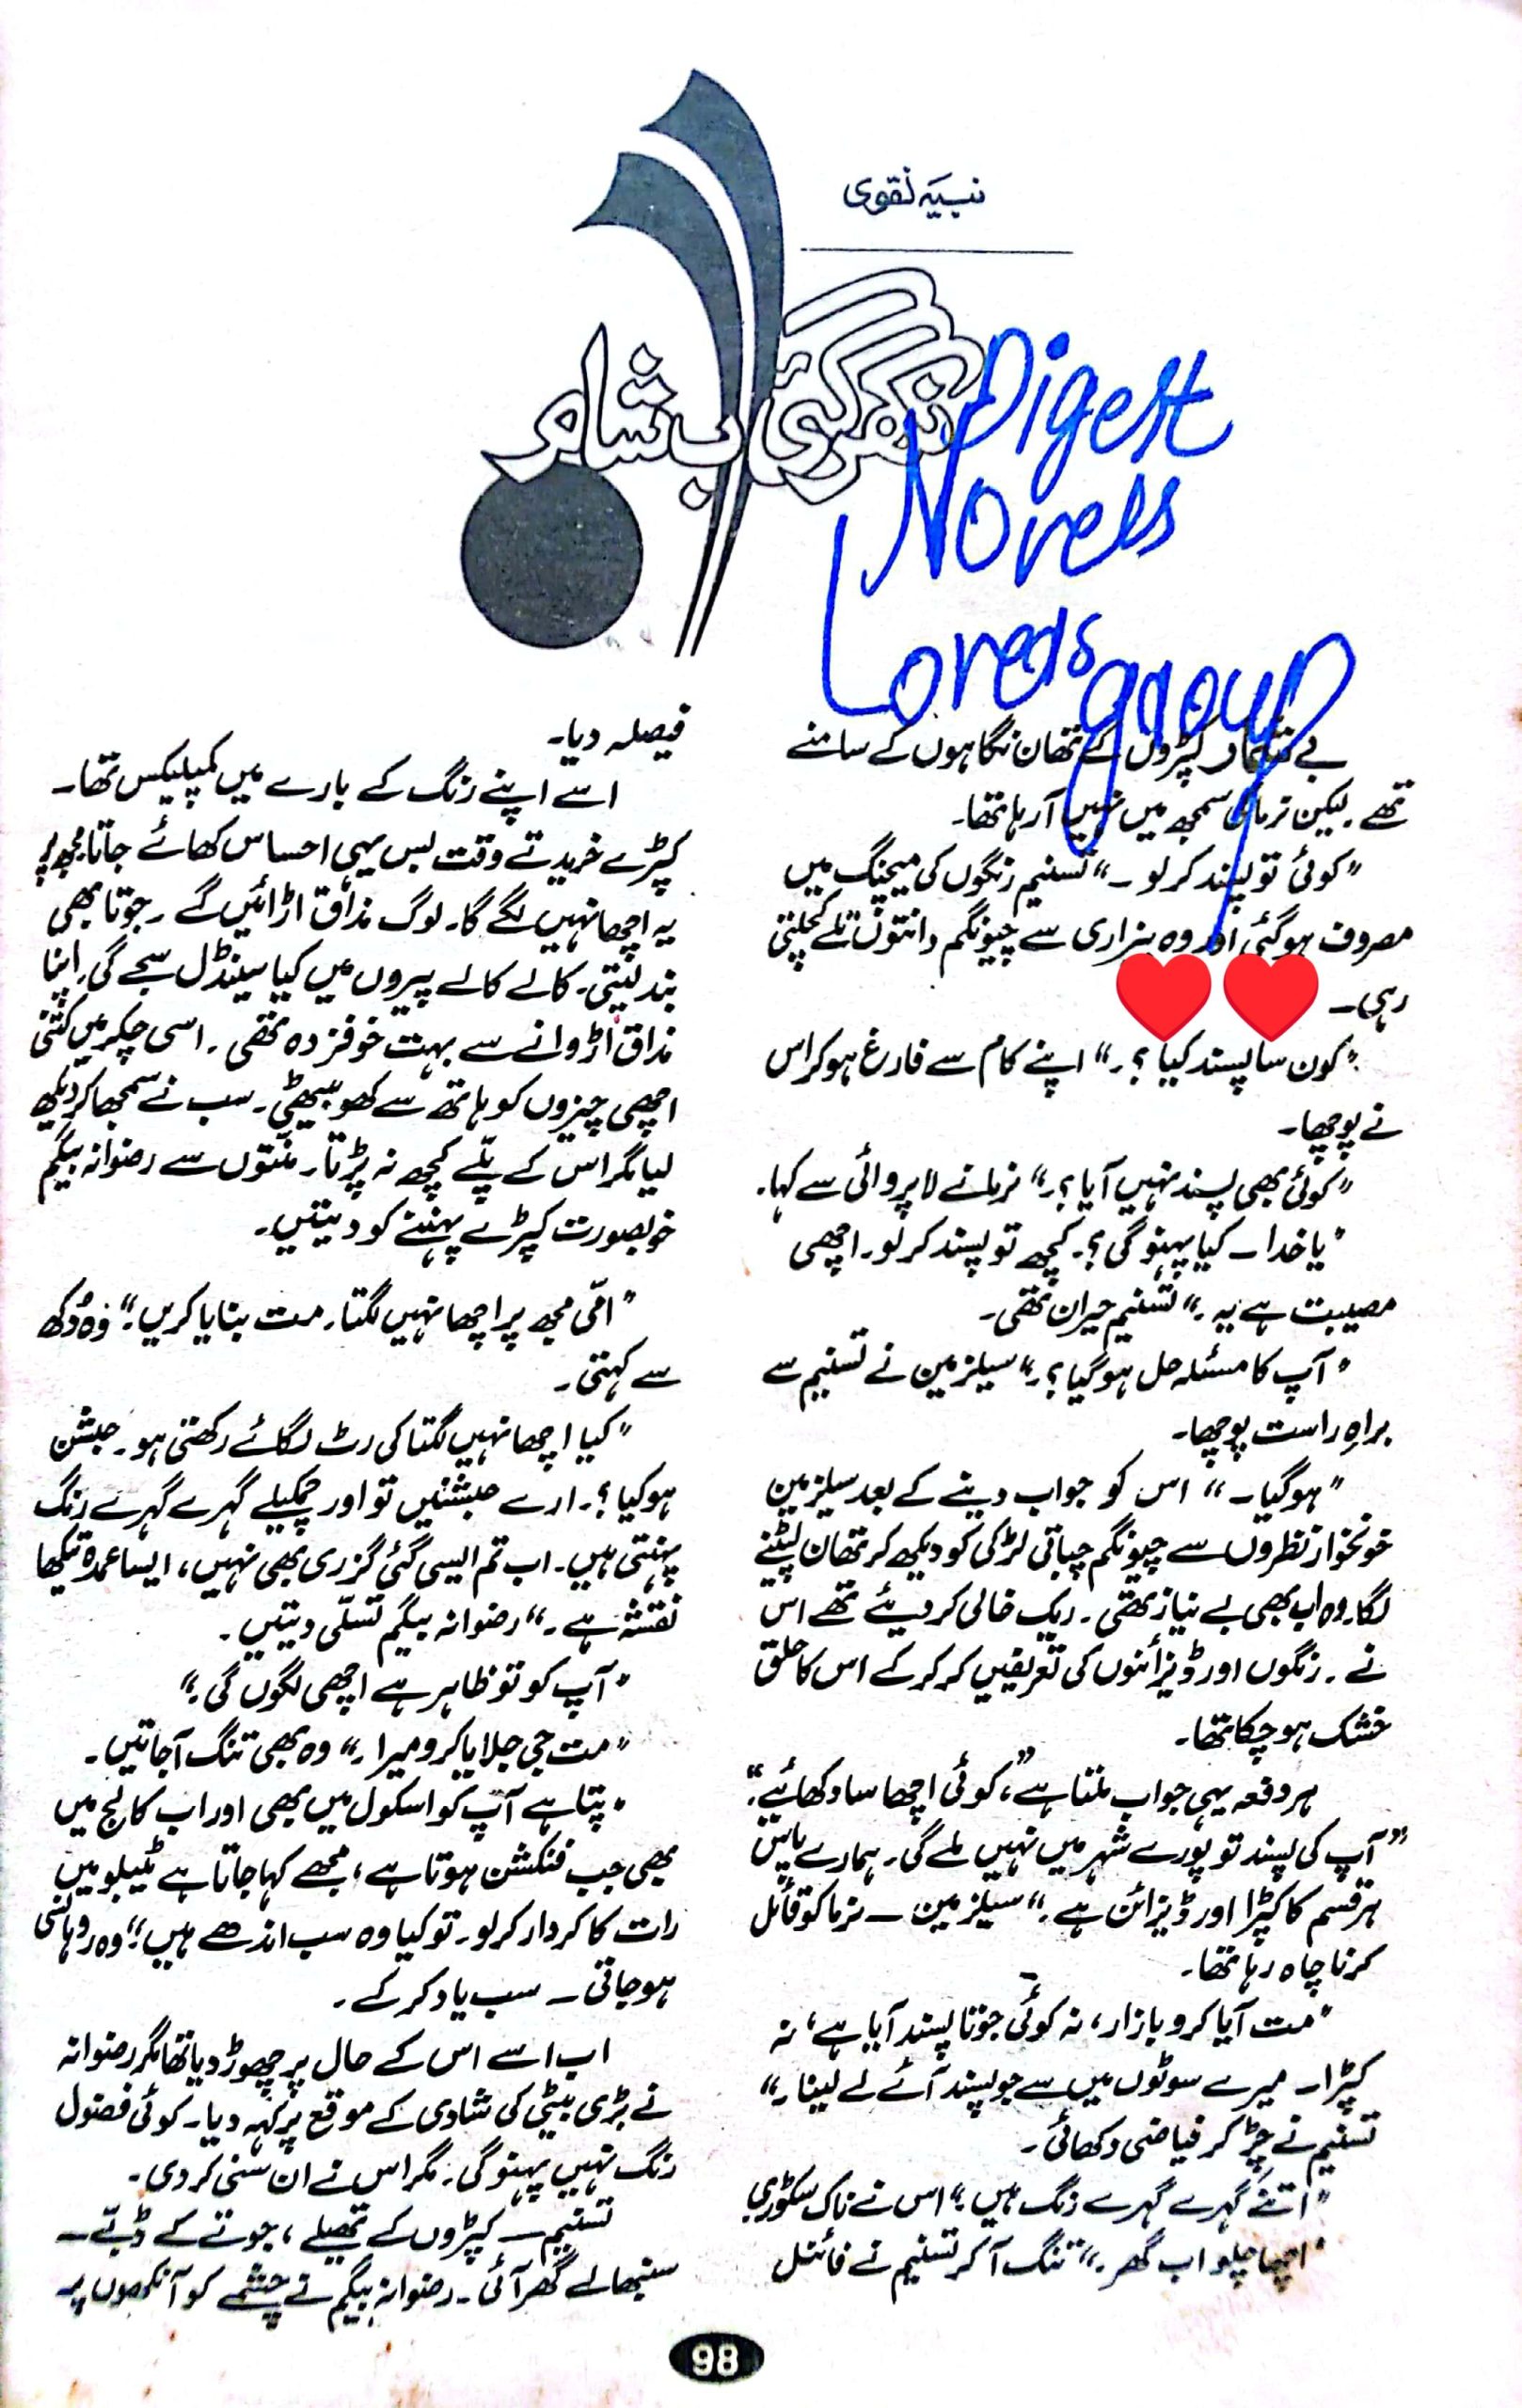 نبیہ نقوی
نکھر گئی اب شام
Digest
Novels
Lovers
group
بے شمار کپڑوں کے تھان نگاہوں کے سامنے
تھے۔ لیکن نرما کی سمجھ میں نہیں آرہا تھا۔
”کوئی تو پسند کر لو۔“ تسنیم رنگوں کی میچنگ میں
مصروف ہو گئی اور وہ بیزاری سے چیونگم دانتوں تلے کچلتی
رہی۔
”کون سا پسند کیا؟۔“ اپنے کام سے فارغ ہو کر اس
نے پوچھا۔
”کوئی بھی پسند نہیں آیا؟۔“ نرما نے لاپروائی سے کہا۔
”یا خدا۔ کیا پہنو گی؟۔ کچھ تو پسند کر لو۔ اچھی
مصیبت ہے یہ۔“ تسنیم حیران تھی۔
”آپ کا مسئلہ حل ہو گیا؟۔“ سیلز مین نے تسنیم سے
براہِ راست پوچھا۔
”ہو گیا۔“ اس کو جواب دینے کے بعد سیلز مین
خونخوار نظروں سے چیونگم چباتی لڑکی کو دیکھ کر تھان لپٹنے
لگا۔ وہ اب بھی بے نیاز تھی۔ ریک خالی کر دیئے تھے اس
نے۔ رنگوں اور ڈیزائنوں کی تعریفیں کر کر کے اس کا حلق
خشک ہو چکا تھا۔
ہر دفعہ یہی جواب ملتا ہے”، کوئی اچھا سا دکھائیے۔“
”آپ کی پسند تو پورے شہر میں نہیں ملے گی۔ ہمارے پاس
ہر قسم کا کپڑا اور ڈیزائن ہے۔“ سیلز مین — نرما کو قائل
کرنا چاہ رہا تھا۔
”مت آیا کرو بازار، نہ کوئی جوتا پسند آیا ہے، نہ
کپڑا۔ میرے سوٹوں میں سے جو پسند آئے لے لینا۔“
تسنیم نے چڑ کر فیاضی دکھائی۔
”اتنے گہرے گہرے رنگ ہیں۔“ اس نے ناک سکوڑی
”اچھا چلو اب گھر۔“ تنگ آکر تسنیم نے فائنل
فیصلہ دیا۔
اسے اپنے رنگ کے بارے میں کمپلیکس تھا۔
کپڑے خریدتے وقت بس یہی احساس کھائے جاتا مجھ پر
یہ اچھا نہیں لگے گا۔ لوگ مذاق اڑائیں گے۔ جوتا بھی
بند لیتی۔ کالے کالے پیروں میں کیا سینڈل سجے گی۔ اپنا
مذاق اڑوانے سے بہت خوفزدہ تھی۔ اسی چکر میں کتنی
اچھی چیزوں کو ہاتھ سے کھو بیٹھی۔ سب نے سمجھا کر دیکھ
لیا مگر اس کے پلّے کچھ نہ پڑتا۔ منتوں سے رضوانہ بیگم
خوبصورت کپڑے پہننے کو دیتیں۔
”امّی مجھ پر اچھا نہیں لگتا۔ مت بنایا کریں۔“ وہ دُکھ
سے کہتی۔
”کیا اچھا نہیں لگتا کی رٹ لگائے رکھتی ہو۔ حبشن
ہو کیا؟۔ ارے حبشنیں تو اور چمکیلے گہرے گہرے رنگ
پہنتی ہیں۔ اب تم ایسی گئی گزری بھی نہیں، ایسا عمدہ تیکھا
نقشہ ہے۔“ رضوانہ بیگم تسلّی دیتیں۔
”آپ کو تو ظاہر ہے اچھی لگوں گی۔“
”مت جی جلایا کرو میرا۔“ وہ بھی تنگ آجاتیں۔
”پتا ہے آپ کو اسکول میں بھی اور اب کالج میں
بھی جب فنکشن ہوتا ہے، مجھے کہا جاتا ہے ٹیبلو میں
رات کا کردار کر لو۔ تو کیا وہ سب اندھے ہیں؛“ وہ روہانسی
ہو جاتی — سب یاد کر کے۔
اب اسے اس کے حال پر چھوڑ دیا تھا مگر رضوانہ
نے بڑی بیٹی کی شادی کے موقع پر کہہ دیا۔ کوئی فضول
رنگ نہیں پہنو گی۔ مگر اس نے ان سنی کر دی۔
تسنیم — کپڑوں کے تھیلے، جوتے کے ڈبّے —
سنبھالے گھر آئی۔ رضوانہ بیگم نے چشمے کو آنکھوں پر
98